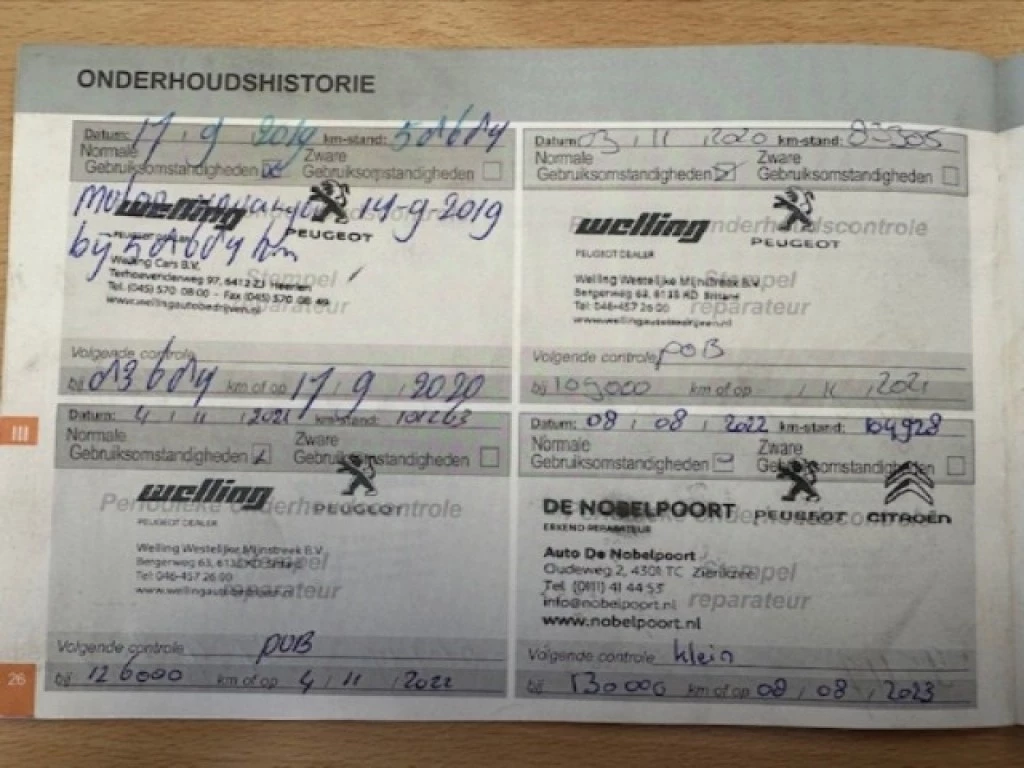 ONDERHOUDSHISTORIE
Datum: 17 / 9 / 2019 km-stand:
Normale Gebruiksomstandigheden Zware Gebruiksomstandigheden
Motor 17-9-2019
bij km
welling PEUGEOT
PEUGEOT DEALER
Welling Cars B.V.
Terhoevenderweg 97, 6412 ZJ Heerlen
Tel. (045) 570 08 00 - Fax (045) 570 08 49
www.wellingautobedrijven.nl
Stempel
reparateur
Volgende controle
bij km of op 17 / 9 / 2020
Datum: 03 / 11 / 2020 km-stand: 83305
Normale Gebruiksomstandigheden Zware Gebruiksomstandigheden
Periodieke onderhoudscontrole
welling PEUGEOT
PEUGEOT DEALER
Welling Westelijke Mijnstreek B.V.
Bergerweg 63, 6135 KD Sittard
Tel: 046-457 26 00
www.wellingautobedrijven.nl
Stempel
reparateur
Volgende controle POB
bij 109000 km of op / 11 / 2021
Datum: 4 / 11 / 2021 km-stand: 101263
Normale Gebruiksomstandigheden Zware Gebruiksomstandigheden
Periodieke onderhoudscontrole
welling PEUGEOT
PEUGEOT DEALER
Welling Westelijke Mijnstreek B.V.
Bergerweg 63, 6135 KD Sittard
Tel: 046-457 26 00
www.wellingautobedrijven.nl
Stempel
reparateur
Volgende controle POB
bij 126000 km of op 4 / 11 / 2022
Datum: 08 / 08 / 2022 km-stand: 104928
Normale Gebruiksomstandigheden Zware Gebruiksomstandigheden
Periodieke onderhoudscontrole
DE NOBELPOORT PEUGEOT CITROËN
ERKEND REPARATEUR
Auto De Nobelpoort
Oudeweg 2, 4301 TC Zierikzee
Tel. (0111) 41 44 55
info@nobelpoort.nl
www.nobelpoort.nl
Stempel
reparateur
Volgende controle klein
bij 130000 km of op 08 / 08 / 2023
III
26